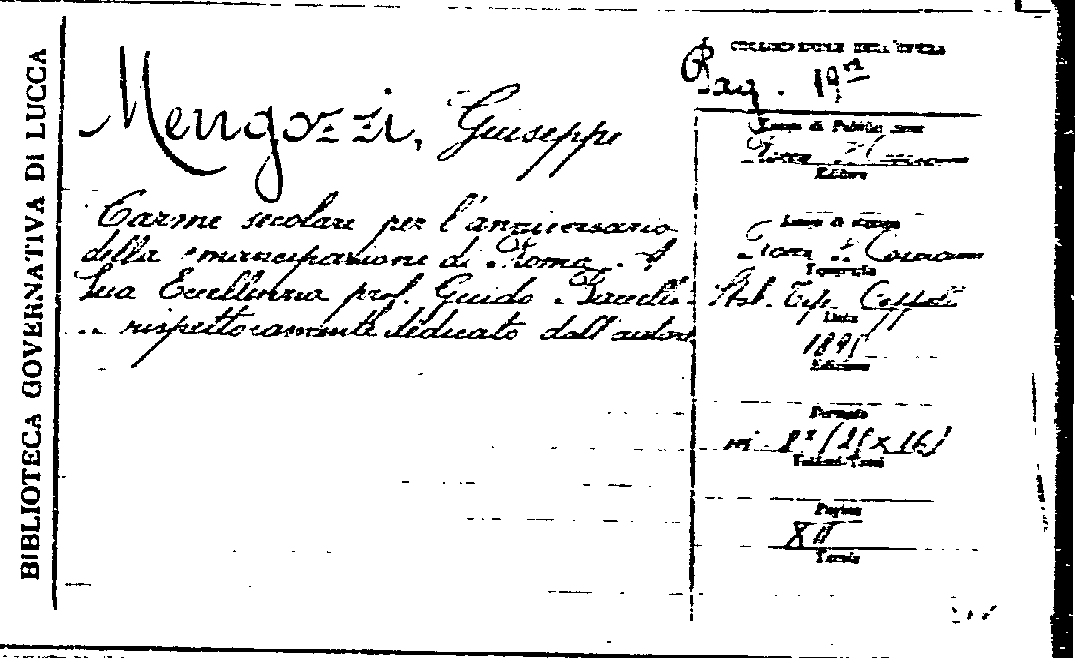 BIBLIOTECA GOVERNATIVA DI LUCCA
Mengozzi, Giuseppe
Carme secolare per l'anniversario
della emancipazione di Roma. A
Sua Eccellenza prof. Guido Baccelli
rispettosamente dedicato dall'autore
COLLOCAZIONE DELL'OPERA
Rag. 19
Luogo di Pubblicazione
Rocca S. Casciano
Editore
Luogo di stampa
Rocca S. Casciano
Tipografia
Stab. Tip. Cappelli
Data
1895
Edizione
Formato
in 8° (25x16)
Volumi-Tomi
Pagine
XII
Tavole